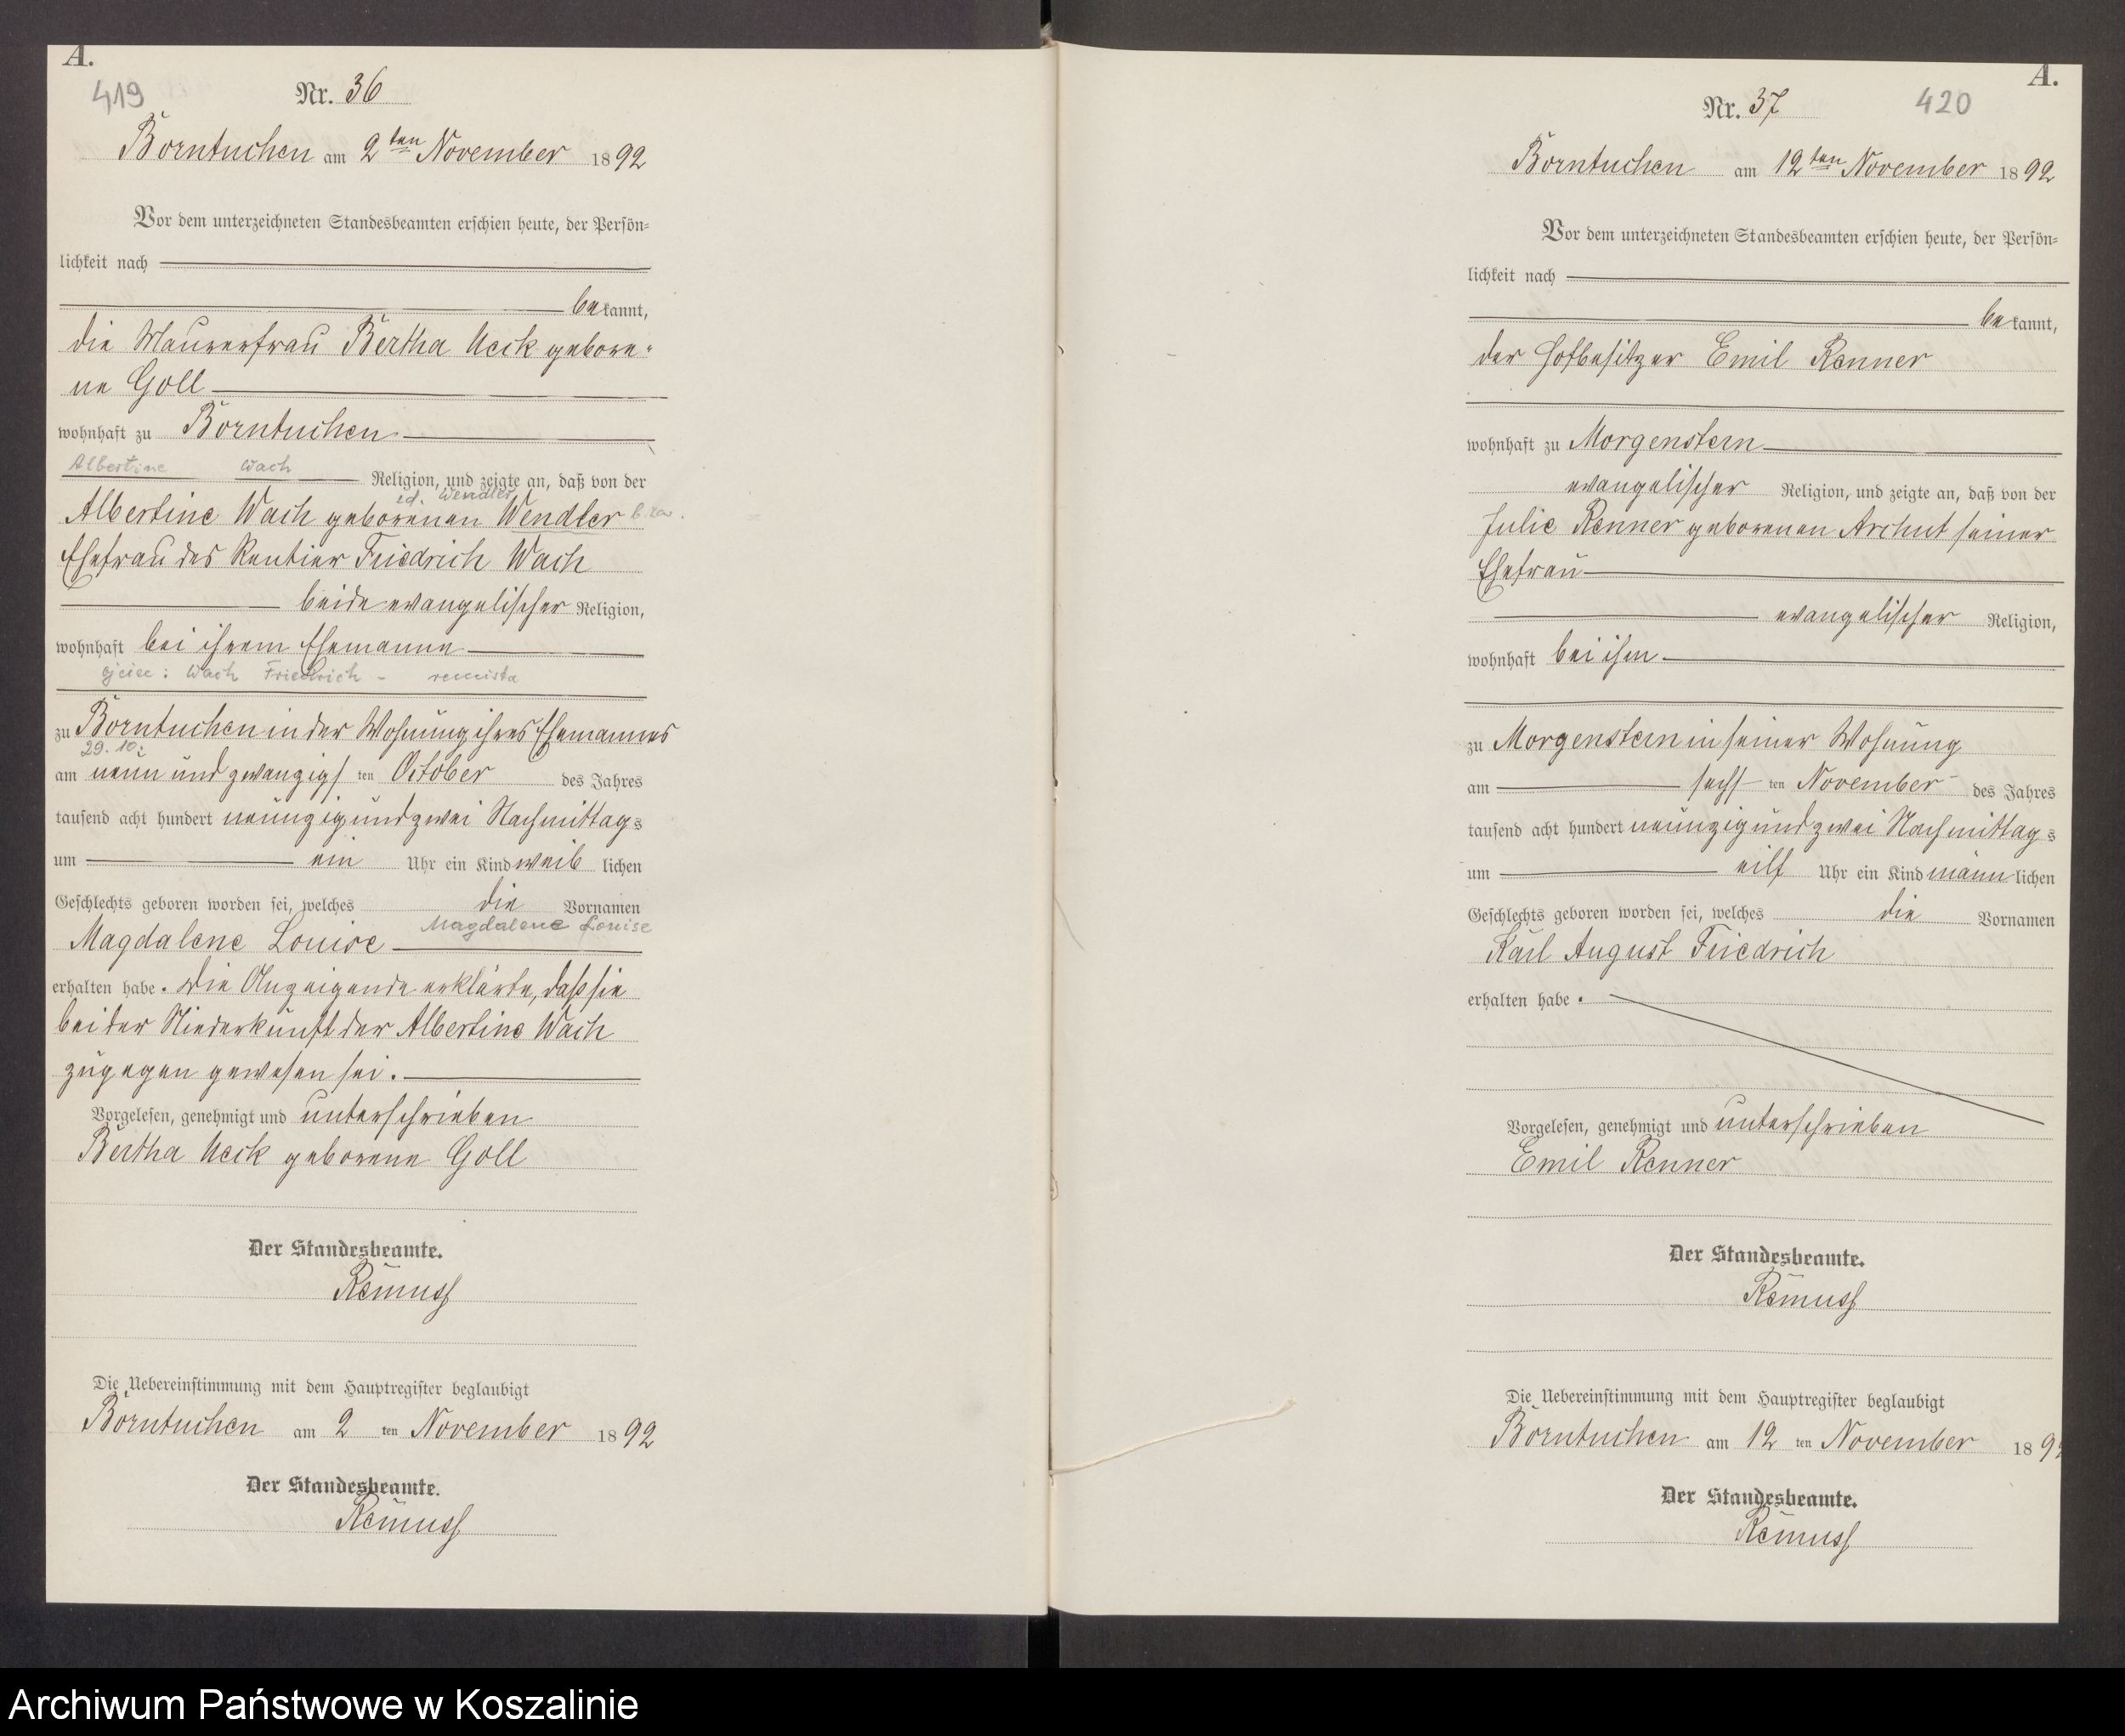 A.
419
Nr. 36
Borntuchen am 2ten November 1892
Vor dem unterzeichneten Standesbeamten erschien heute, der Persön=
lichkeit nach
bekannt,
die Maurerfrau Bertha Ueck gebore-
ne Goll
wohnhaft zu Borntuchen
Albertine Wach
Religion, und zeigte an, daß von der
Wendler
Albertine Wach geborenen Wendler
Ehefrau des Rentier Friedrich Wach
beide evangelischer Religion,
wohnhaft bei ihrem Ehemanne
ojciec: Wach Friedrich -
zu Borntuchen in der Wohnung ihres Ehemannes
29. 10.
am neun und zwanzigsten October des Jahres
tausend acht hundert neunzig und zwei Nachmittags
um ein Uhr ein Kind weiblichen
Geschlechts geboren worden sei, welches die Vornamen
Magdalene Louise
Magdalene Louise
erhalten habe. Die Anzeigende erklärte, daß sie
bei der Niederkunft der Albertine Wach
zugegen gewesen sei.
Vorgelesen, genehmigt und unterschrieben
Bertha Ueck geborene Goll
Der Standesbeamte.
Remuss
Die Uebereinstimmung mit dem Hauptregister beglaubigt
Borntuchen am 2ten November 1892
Der Standesbeamte.
Remuss
A.
420
Nr. 37
Borntuchen am 12ten November 1892
Vor dem unterzeichneten Standesbeamten erschien heute, der Persön=
lichkeit nach
bekannt,
der Hofbesitzer Emil Renner
wohnhaft zu Morgenstern
evangelischer Religion, und zeigte an, daß von der
Julie Renner geborenen Archut seiner
Ehefrau
evangelischer Religion,
wohnhaft bei ihm
zu Morgenstern in seiner Wohnung
am sechsten November des Jahres
tausend acht hundert neunzig und zwei Nachmittags
um eilf Uhr ein Kind männlichen
Geschlechts geboren worden sei, welches die Vornamen
Karl August Friedrich
erhalten habe.
Vorgelesen, genehmigt und unterschrieben
Emil Renner
Der Standesbeamte.
Remuss
Die Uebereinstimmung mit dem Hauptregister beglaubigt
Borntuchen am 12ten November 189
Der Standesbeamte.
Remuss
Archiwum Państwowe w Koszalinie